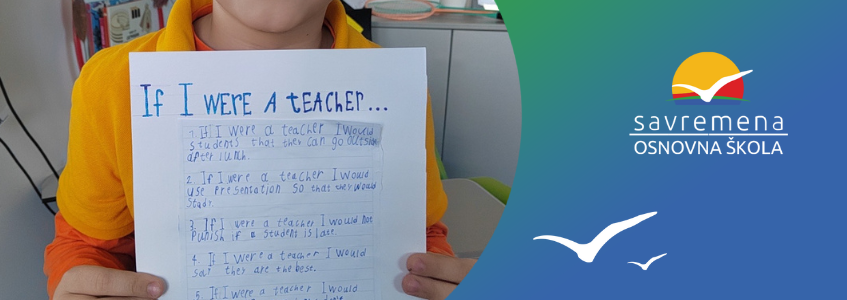 If I WERE A tEACHER...
1. If I were a teacher I would
students that they can go outside
after lunch.
2. If I were a teacher I would
use presentation so that they would
study.
3. If I were a teacher I would not
punish if a student is late.
4. If I were a teacher I would
say they are the best.
5. If I were a teacher I would
savremena
OSNOVNA ŠKOLA